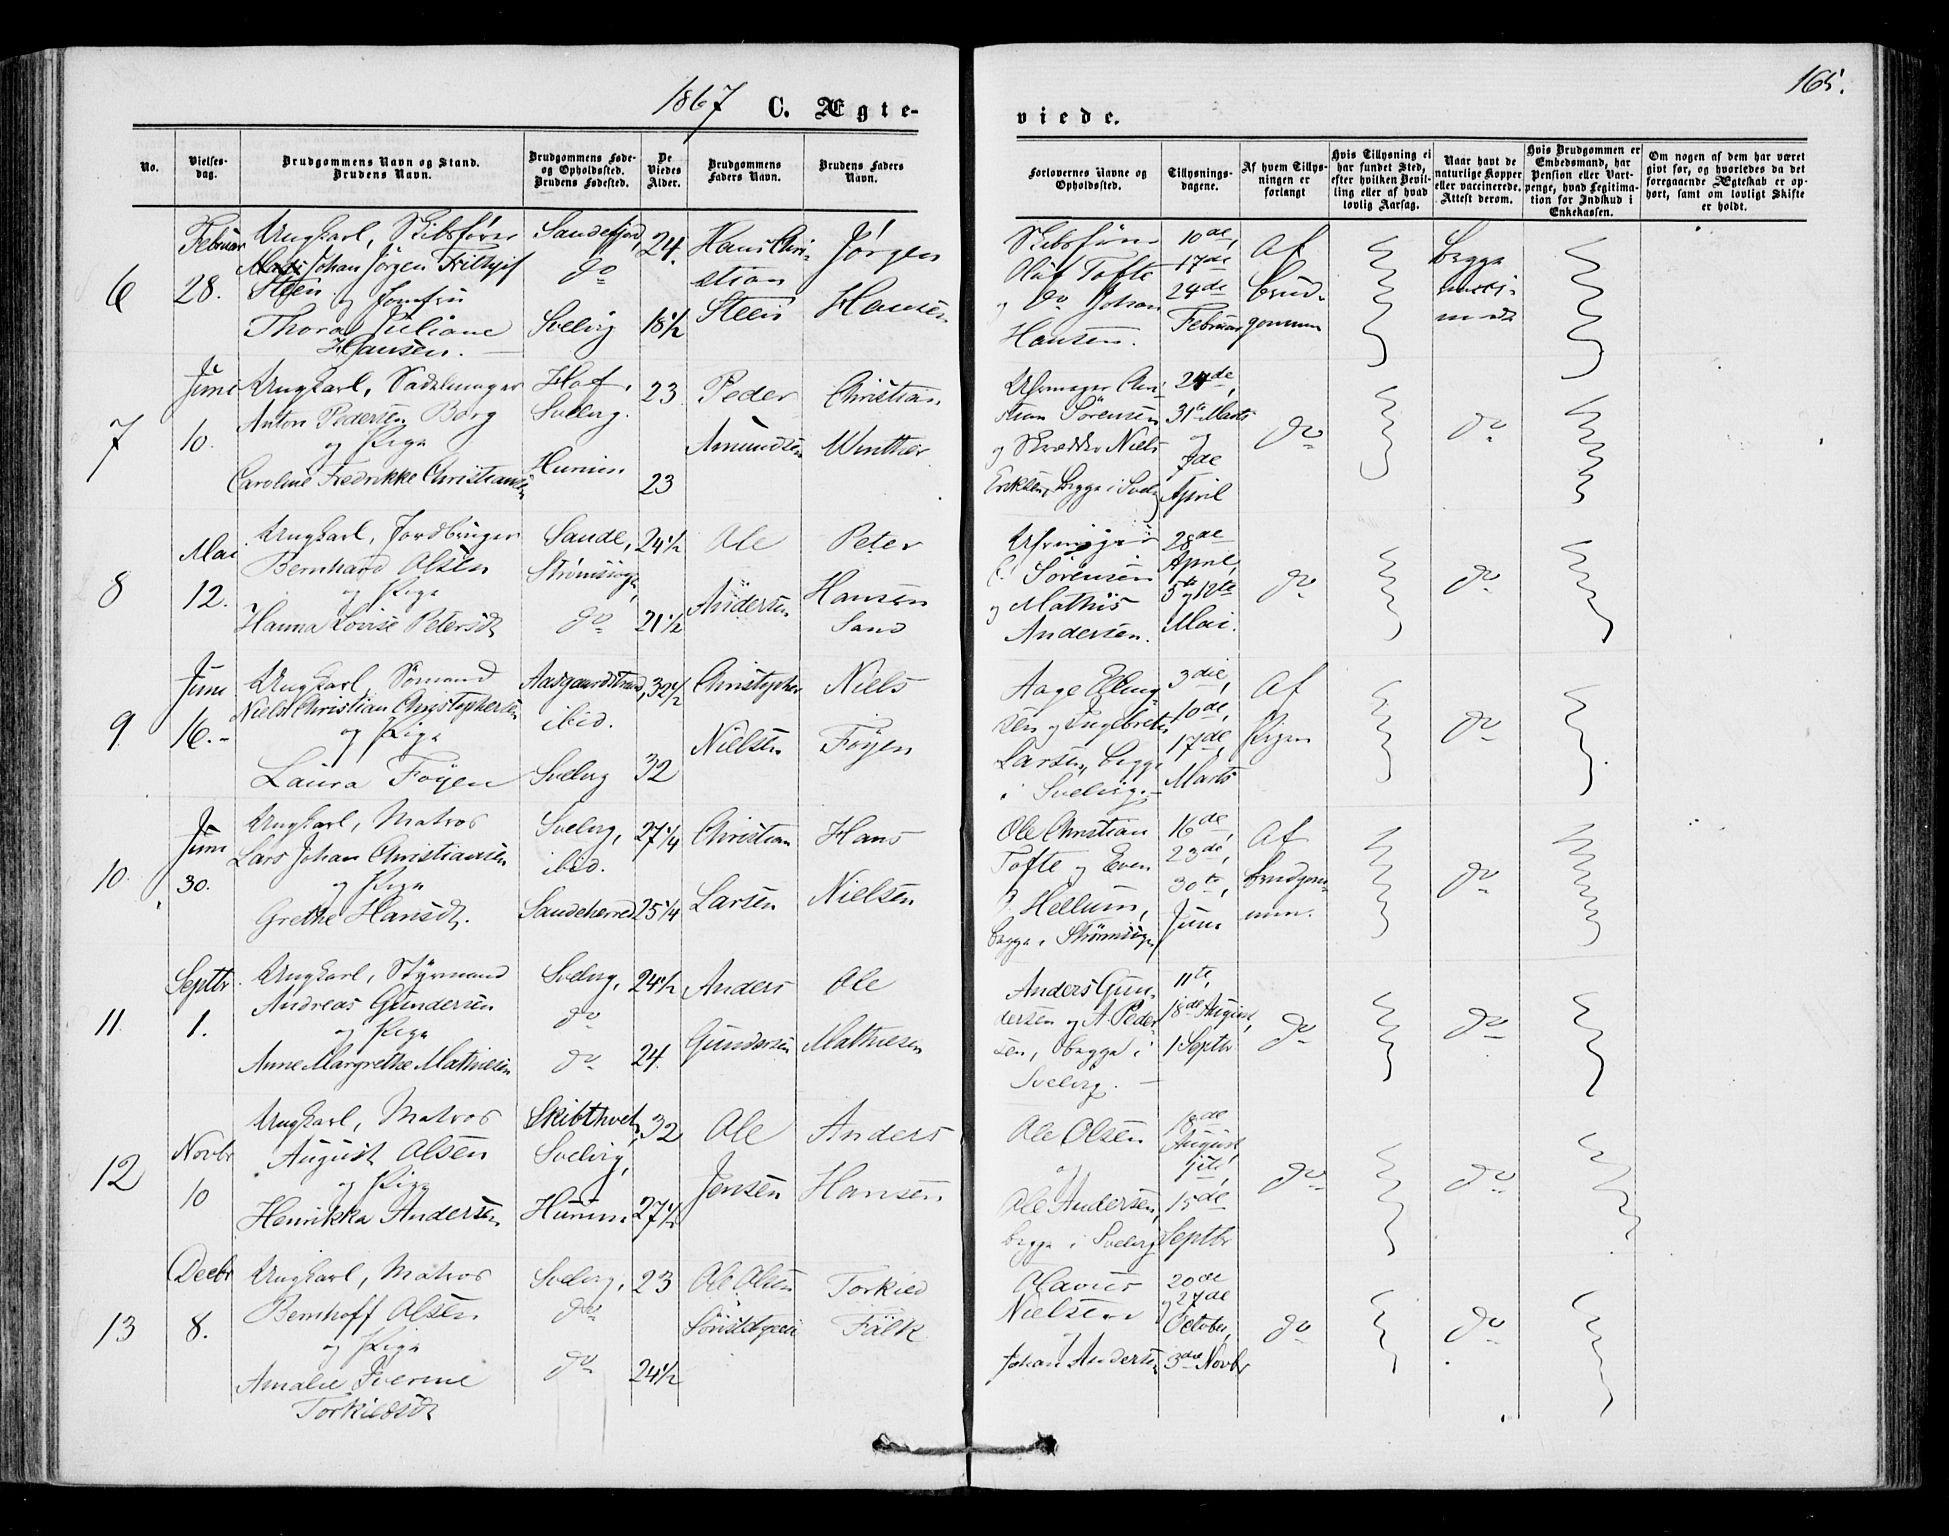 1867 C. Ægte-
viede.
165.
No.
Vielses-
dag.
Brudgommens Navn og Stand.
Brudens Navn.
Brudgommens Føde-
og Opholdssted.
Brudens Fødested.
De
Viedes
Alder.
Brudgommens
Faders Navn.
Brudens Faders
Navn.
Forlovernes Navne og
Opholdssted.
Tillysnings-
dagene.
Af hvem Tillys-
ningen er
forlangt
Hvis Tillysning ei
har fundet Sted,
efter hvilken Bevil-
ling eller af hvad
lovlig Aarsag.
Naar havt de
naturlige Kopper
eller vaccinerede.
Attest derom.
Hvis Brudgommen er
Embedsmand, har
Pension eller Vart-
penge, hvad Legitima-
tion for Indskud i
Enkekassen.
Om nogen af dem har været
givt før, og hvorledes da det
foregaaende Ægteskab er op-
hørt, samt om lovligt Skifte
er holdt.
6
Februar
28.
Ungkarl, Skibsfører
Johan Jörgen Frithjof
Steen og Jomfru
Thora Juliane
Hansen.
Sandefjord,
do
Svelvig
24.
18½
Hans Chri-
stian
Steen
Jörgen
Hansen
Skibsfører
Oluf Tofte
og do Johan
Hansen.
10de,
17de
24de
Februar
Af
Brud-
gommen
begge
vacci-
nerede
7
Juni
10.
Ungkarl, Sadelmager
Anton Pedersen Borg
og Pige
Caroline Fredrikke Christiansen
Hof,
Svelvig.
Hurum
23
23
Peder
Amundsen
Christian
Winther
Uhrmager Chri-
stian Sörensen
og Skrædder Niels
Eriksen, begge i Svelv
24de,
31te Marts
og
7de
April
do
do
8
Mai
12.
Ungkarl, Jordbruger
Bernhard Olsen
og Pige
Hanna Lovise Petersdt
Sande,
Strömsogn,
do
24½
21½
Ole
Andersen
Peter
Hansen
Sand
Uhrmager
C. Sörensen
og Mathis
Andersen.
28de
April,
5te og 12te
Mai.
do
do
9.
Juni
16.
Ungkarl, Sömand
Niels Christian Christophersen
og Pige
Laura Föyen
Aasgaardstrand,
ibid.
Svelvig
32½
32
Christopher
Nielsen
Niels
Föyen
Aage Elling-
sen og Engebreth
Larsen, begge
i Svelvig.
3die,
10de,
17de,
Marts
Af
Pigen
do
10.
Juni
30.
Ungkarl, Matros
Lars Johan Christiansen
og Pige
Grethe Hansdt.
Svelvig,
ibid.
Sandeherred
27¼
25¼
Christian
Larsen
Hans
Nielsen
Ole Christian
Tofte og Even
P. Hellum,
begge i Strömsogn
16de,
23de,
30te,
Juni
Af
Brudgom-
men.
do
11.
Septbr.
1.
Ungkarl, Styrmand
Andreas Gundersen
og Pige
Anne Margrethe Mathiesen
Svelvig,
do
do
24½
24.
Anders
Gundersen
Ole
Mathiesen
Anders Gun-
dersen og A. Peder-
sen, begge i
Svelvig.
11te,
18de August,
1 Septbr
do
do
12
Novbr
10
Ungkarl, Matros
August Olsen
og Pige
Henrikka Andersen
Skibthvet,
Svelvig,
Hurum
32
27½
Ole
Jensen
Anders
Hansen
Ole Olsen
og
Ole Andersen,
begge i Svelvig
18de
August,
15de
Septbr
do
do
13
Decbr
8.
Ungkarl, Matros
Bernhoff Olsen
og Pige
Amalie Iverine
Torkildsdt
Svelvig,
do
do
23
24½
Ole Olsen
Torkild
Falk
Olavus
Nielsen
og
Johan Andersen
20de
og 27de
October,
3die Novbr
do
do